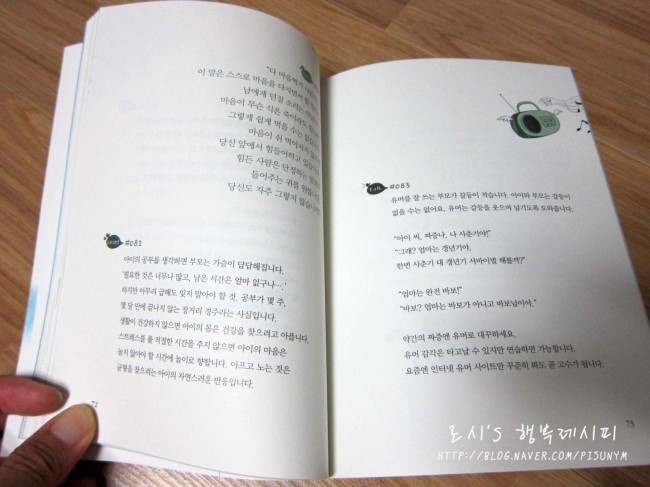 "다 마음먹기
이 말은 스스로 마음을 다지면서
남에게 던질 소리는
마음이 무슨 식은 죽이라도
그렇게 쉽게 먹을 수는
마음이 쉬 먹어지지
당신 앞에서 힘들어하고
힘든 사람은 단정하는
들어주는 귀를 원합니다
당신도 자주 그렇지 않습니까
#081
아이의 공부를 생각하면 부모는 가슴이 답답해집니다.
'필요한 것은 너무나 많고, 남은 시간은 얼마 없구나….'
하지만 아무리 급해도 잊지 말아야 할 것. 공부가 몇 주,
몇 달 만에 끝나지 않는 장거리 경주라는 사실입니다.
생활이 건강하지 않으면 아이의 몸은 건강을 찾으려고 아픕니다.
스트레스를 풀 적절한 시간을 주지 않으면 아이의 마음은
놀지 말아야 할 시간에 놀이로 향합니다. 아프고 노는 것은
균형을 찾으려는 아이의 자연스러운 반응입니다.
72
#083
유머를 잘 쓰는 부모가 갈등이 적습니다. 아이와 부모는 갈등이
없을 수는 없어요. 유머는 갈등을 웃으며 넘기도록 도와줍니다.
"아이 씨, 짜증나. 나 사춘기야!"
"그래? 엄마는 갱년기야.
한번 사춘기 대 갱년기 서바이벌 해볼까?"
"엄마는 완전 바보!"
"바보? 엄마는 바보가 아니고 바보님이야."
약간의 짜증엔 유머로 대꾸하세요.
유머 감각은 타고날 수 있지만 연습하면 가능합니다.
요즘엔 인터넷 유머 사이트만 꾸준히 봐도 곧 고수가 됩니다.
73
로시's 행복레시피
HTTP://BLOG.NAVER.COM/PISUNYM